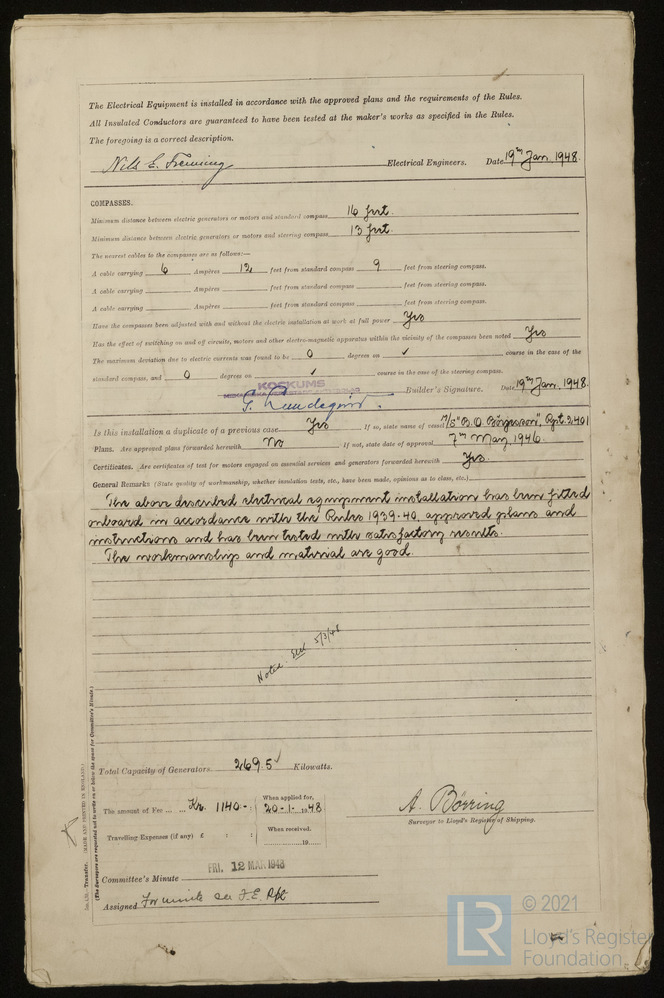 The Electrical Equipment is installed in accordance with the approved plans and the requirements of the Rules.
All Insulated Conductors are guaranteed to have been tested at the maker's works as specified in the Rules.
The foregoing is a correct description.
Nils E. Electrical Engineers. Date 19th Jan. 1948.
COMPASSES.
Minimum distance between electric generators or motors and standard compass 16 feet.
Minimum distance between electric generators or motors and steering compass 13 feet.
The nearest cables to the compasses are as follows:—
A cable carrying 6 Ampères 12 feet from standard compass 9 feet from steering compass.
A cable carrying Ampères feet from standard compass feet from steering compass.
A cable carrying Ampères feet from standard compass feet from steering compass.
Have the compasses been adjusted with and without the electric installation at work at full power Yes
Has the effect of switching on and off circuits, motors and other electro-magnetic apparatus within the vicinity of the compasses been noted Yes
The maximum deviation due to electric currents was found to be 0 degrees on ✓ course in the case of the
standard compass, and 0 degrees on ✓ course in the case of the steering compass.
KOCKUMS
Builder's Signature. Date 19th Jan. 1948.
Is this installation a duplicate of a previous case Yes If so, state name of vessel M/S "B.O. Börjesson", Rpt. 3401
Plans. Are approved plans forwarded herewith No If not, state date of approval 7th May, 1946.
Certificates. Are certificates of test for motors engaged on essential services and generators forwarded herewith Yes.
General Remarks (State quality of workmanship, whether insulation tests, etc., have been made, opinions as to class, etc.)
The above described electrical equipment installation has been fitted
onboard in accordance with the Rules 1939-40, approved plans and
instructions and has been tested with satisfactory results.
The workmanship and material are good.
Noted 5/3/48
Total Capacity of Generators 269.5 ✓ Kilowatts.
The amount of Fee ... ... Kr. 1140-: When applied for, 20-1- 1948
Travelling Expenses (if any) £ : : When received. 19
A. Börring
Surveyor to Lloyd's Register of Shipping.
FRI. 12 MAR 1948
Committee's Minute
Assigned For minute see F.E. Rpt
Transfer. (MADE AND PRINTED IN ENGLAND.)
(The Surveyors are requested not to write on or below the space for Committee's Minute.)
LR © 2021
Lloyd's Register
Foundation